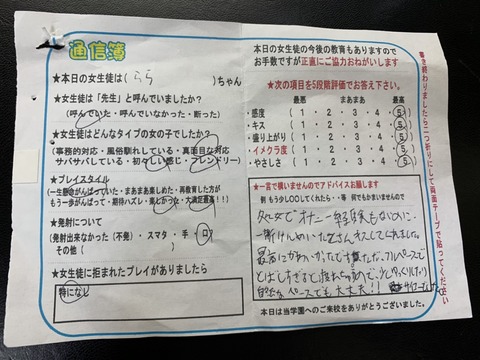 通信簿
★本日の女生徒は(らら)ちゃん
★女生徒は「先生」と呼んでいましたか?
(呼んでいた・呼んでいなかった・断った)
★女生徒はどんなタイプの女の子でしたか?
(事務的対応・風俗馴れしている・真面目な対応
サバサバしている・初々しい感じ・フレンドリー)
★プレイスタイル
(一生懸命がんばっていた・まあまあ楽しめた・再教育した方が
もう一歩がんばって・期待ハズレ・楽しかった・大満足最高!!)
★発射について
(発射出来なかった(不発)・スマタ・手・口
その他( )
★女生徒に拒まれたプレイがありましたら
特になし
本日の女生徒の今後の教育もありますので
お手数ですが正直にご協力おねがいします
★次の項目を5段階評価でお答え下さい。
最悪 まあまあ 最高
・感度 (1・2・3・4・5)
・キス (1・2・3・4・5)
・盛り上がり (1・2・3・4・5)
・イメクラ度 (1・2・3・4・5)
・やさしさ (1・2・3・4・5)
★一言で構いませんのでアドバイスお願します
例 もう少しLOOしてくれたら・等 何でもかまいませんので
処女でオナニー経験もないのに、
一生けんめいたくさんキスしてくれました。
最高にかわいかったです
ペースでも大丈夫!!
本日は当学園へのご来校をありがとうございました。
書き終わりましたら二つ折りにして両面テープで貼ってください